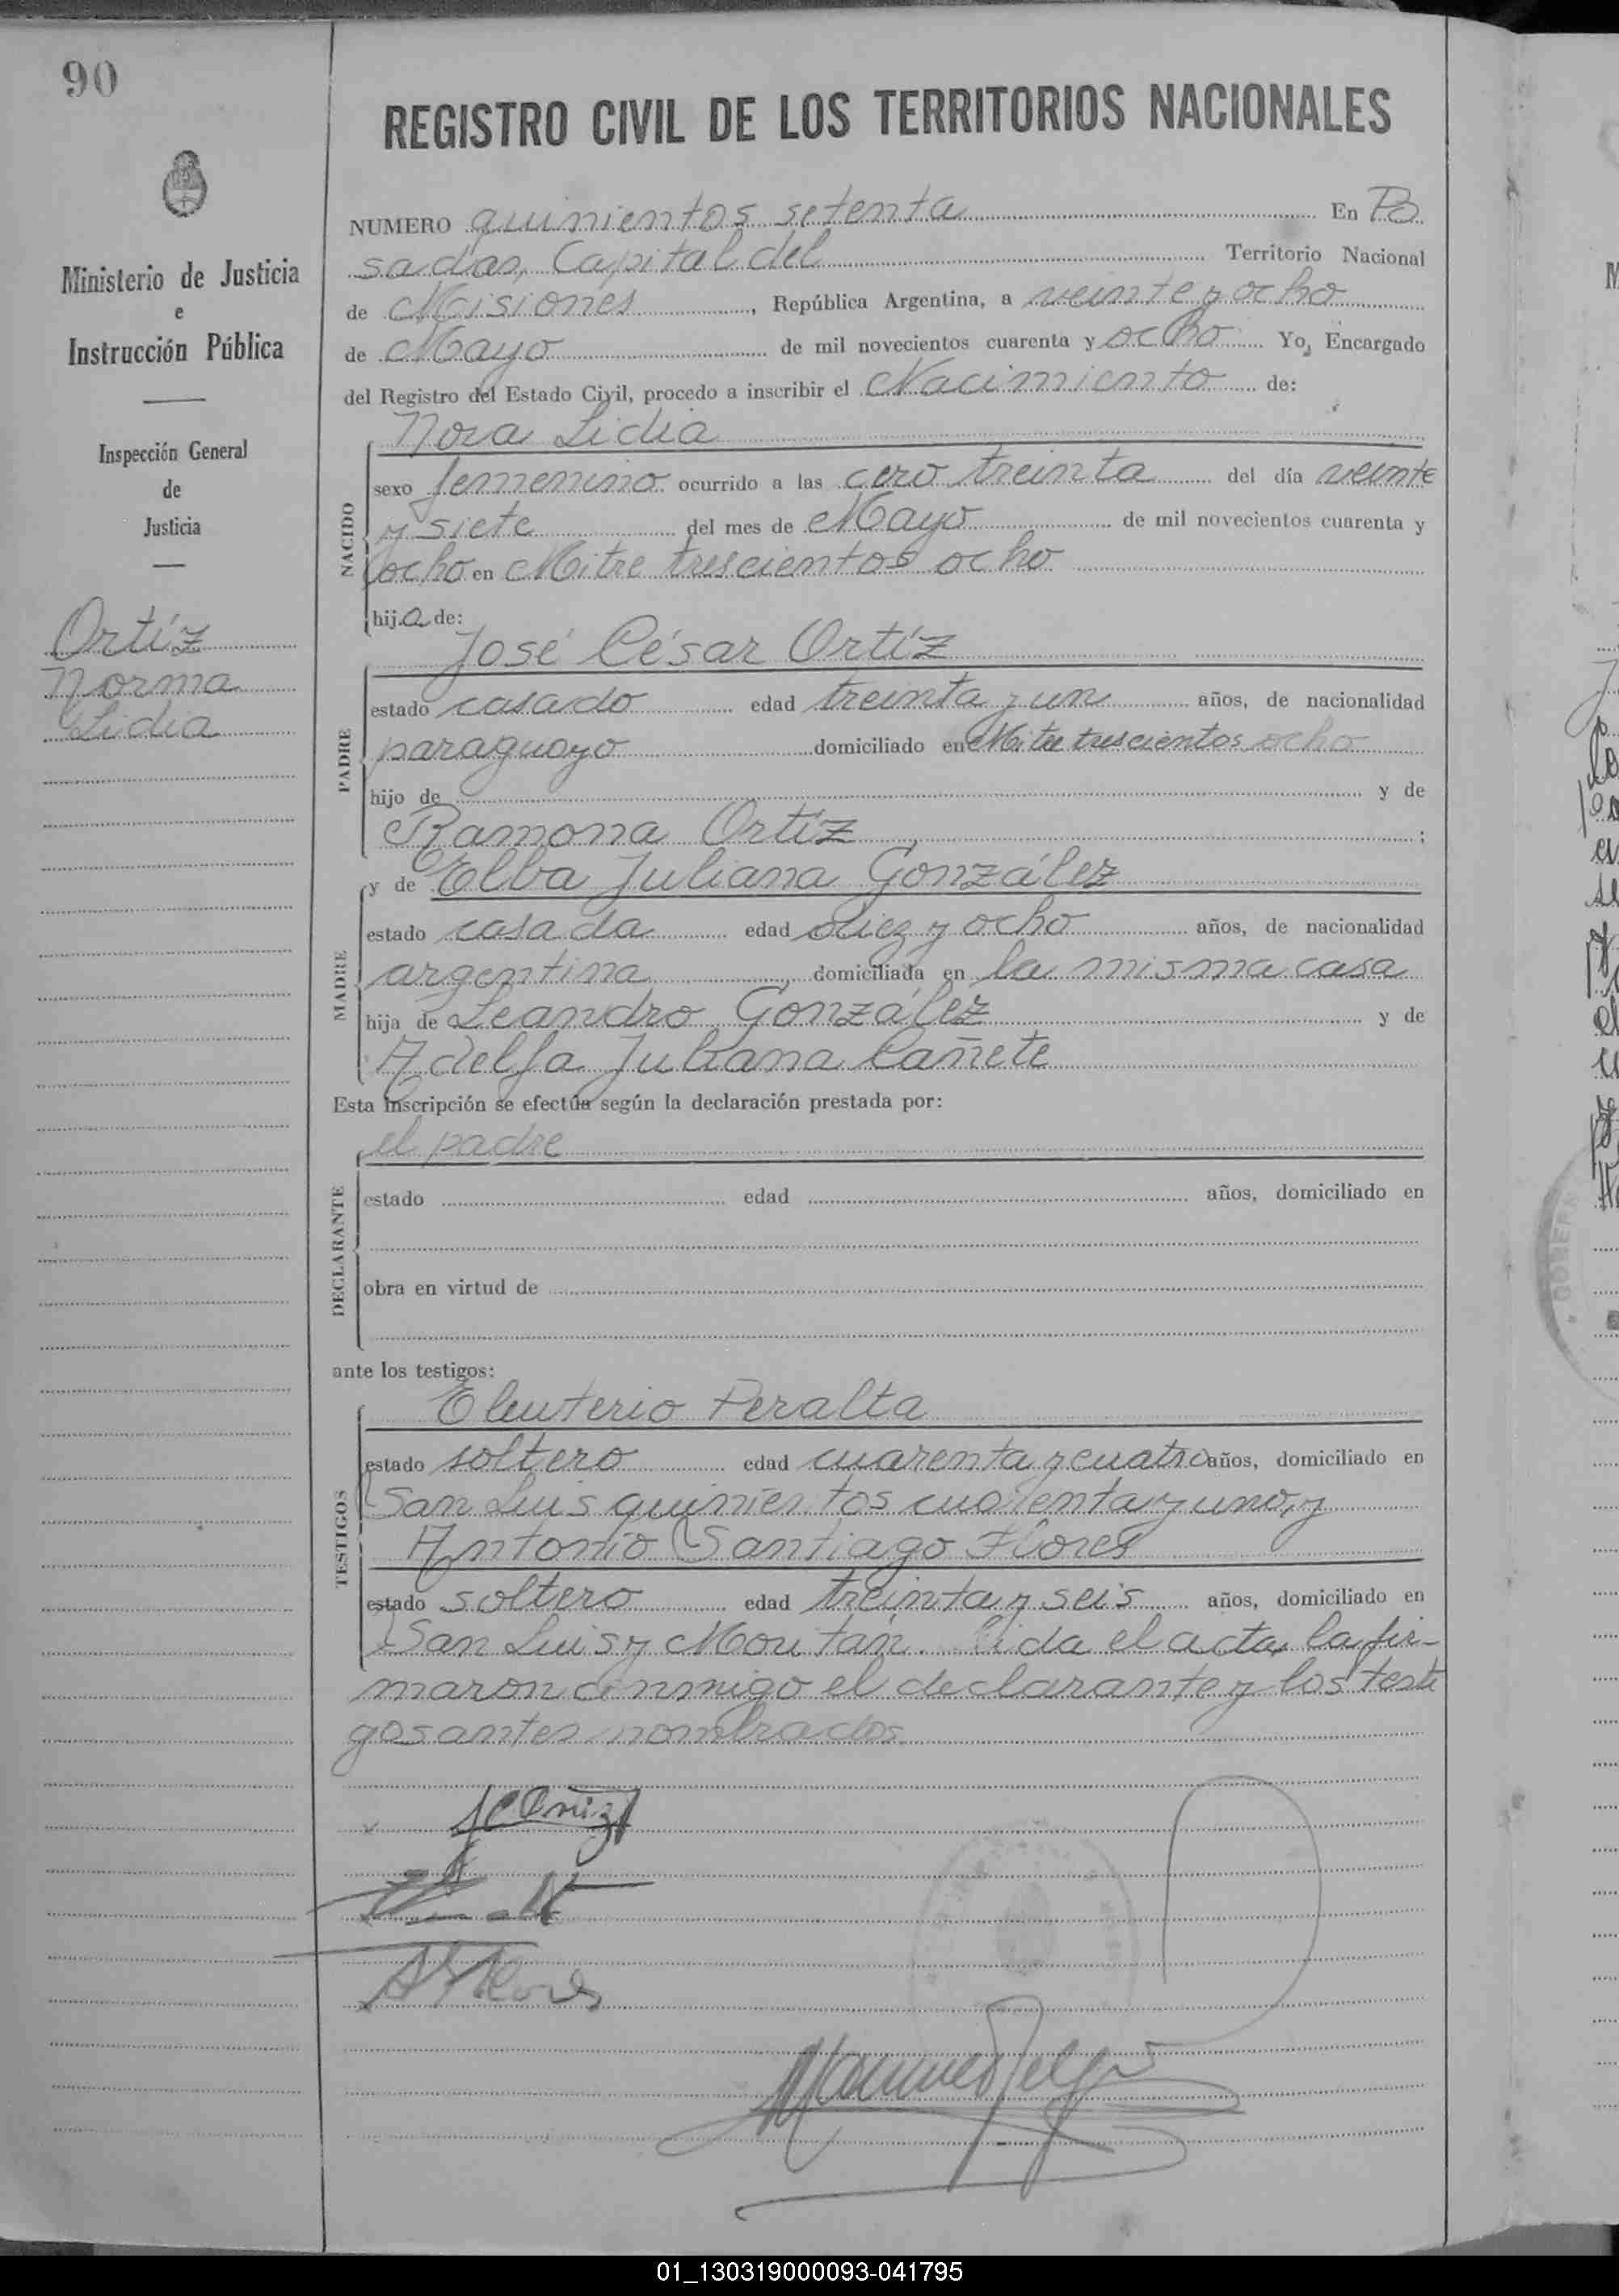 90
REGISTRO CIVIL DE LOS TERRITORIOS NACIONALES
Ministerio de Justicia
e
Instrucción Pública
Inspección General
de
Justicia
Ortíz
Norma
Lidia
NUMERO quinientos setenta En Po
sadas, Capital del Territorio Nacional
de Misiones, República Argentina, a veinte y ocho
de Mayo de mil novecientos cuarenta y ocho Yo, Encargado
del Registro del Estado Civil, procedo a inscribir el Nacimiento de:
NACIDO
Nora Lidia
sexo femenino ocurrido a las cero treinta del día veinte
y siete del mes de Mayo de mil novecientos cuarenta y
ocho en Mitre trescientos ocho
hija de:
PADRE
José César Ortíz
estado casado edad treinta y un años, de nacionalidad
paraguayo domiciliado en Mitre trescientos ocho
hijo de y de
Ramona Ortíz ;
MADRE
y de Elba Juliana González
estado casada edad diez y ocho años, de nacionalidad
argentina, domiciliada en la misma casa
hija de Leandro González y de
Adelfa Juliana Cañete
Esta inscripción se efectúa según la declaración prestada por:
DECLARANTE
el padre
estado edad años, domiciliado en
obra en virtud de
ante los testigos:
TESTIGOS
Eleuterio Peralta
estado soltero edad cuarenta y cuatro años, domiciliado en
San Luis quinientos cuarenta y uno, y
Antonio Santiago Flores
estado soltero edad treinta y seis años, domiciliado en
San Luis y Moutan. Leida el acta, la fir-
maron conmigo el declarante y los testi
gos antes nombrados.
JC Ortiz
A S Flores
01_130319000093-041795